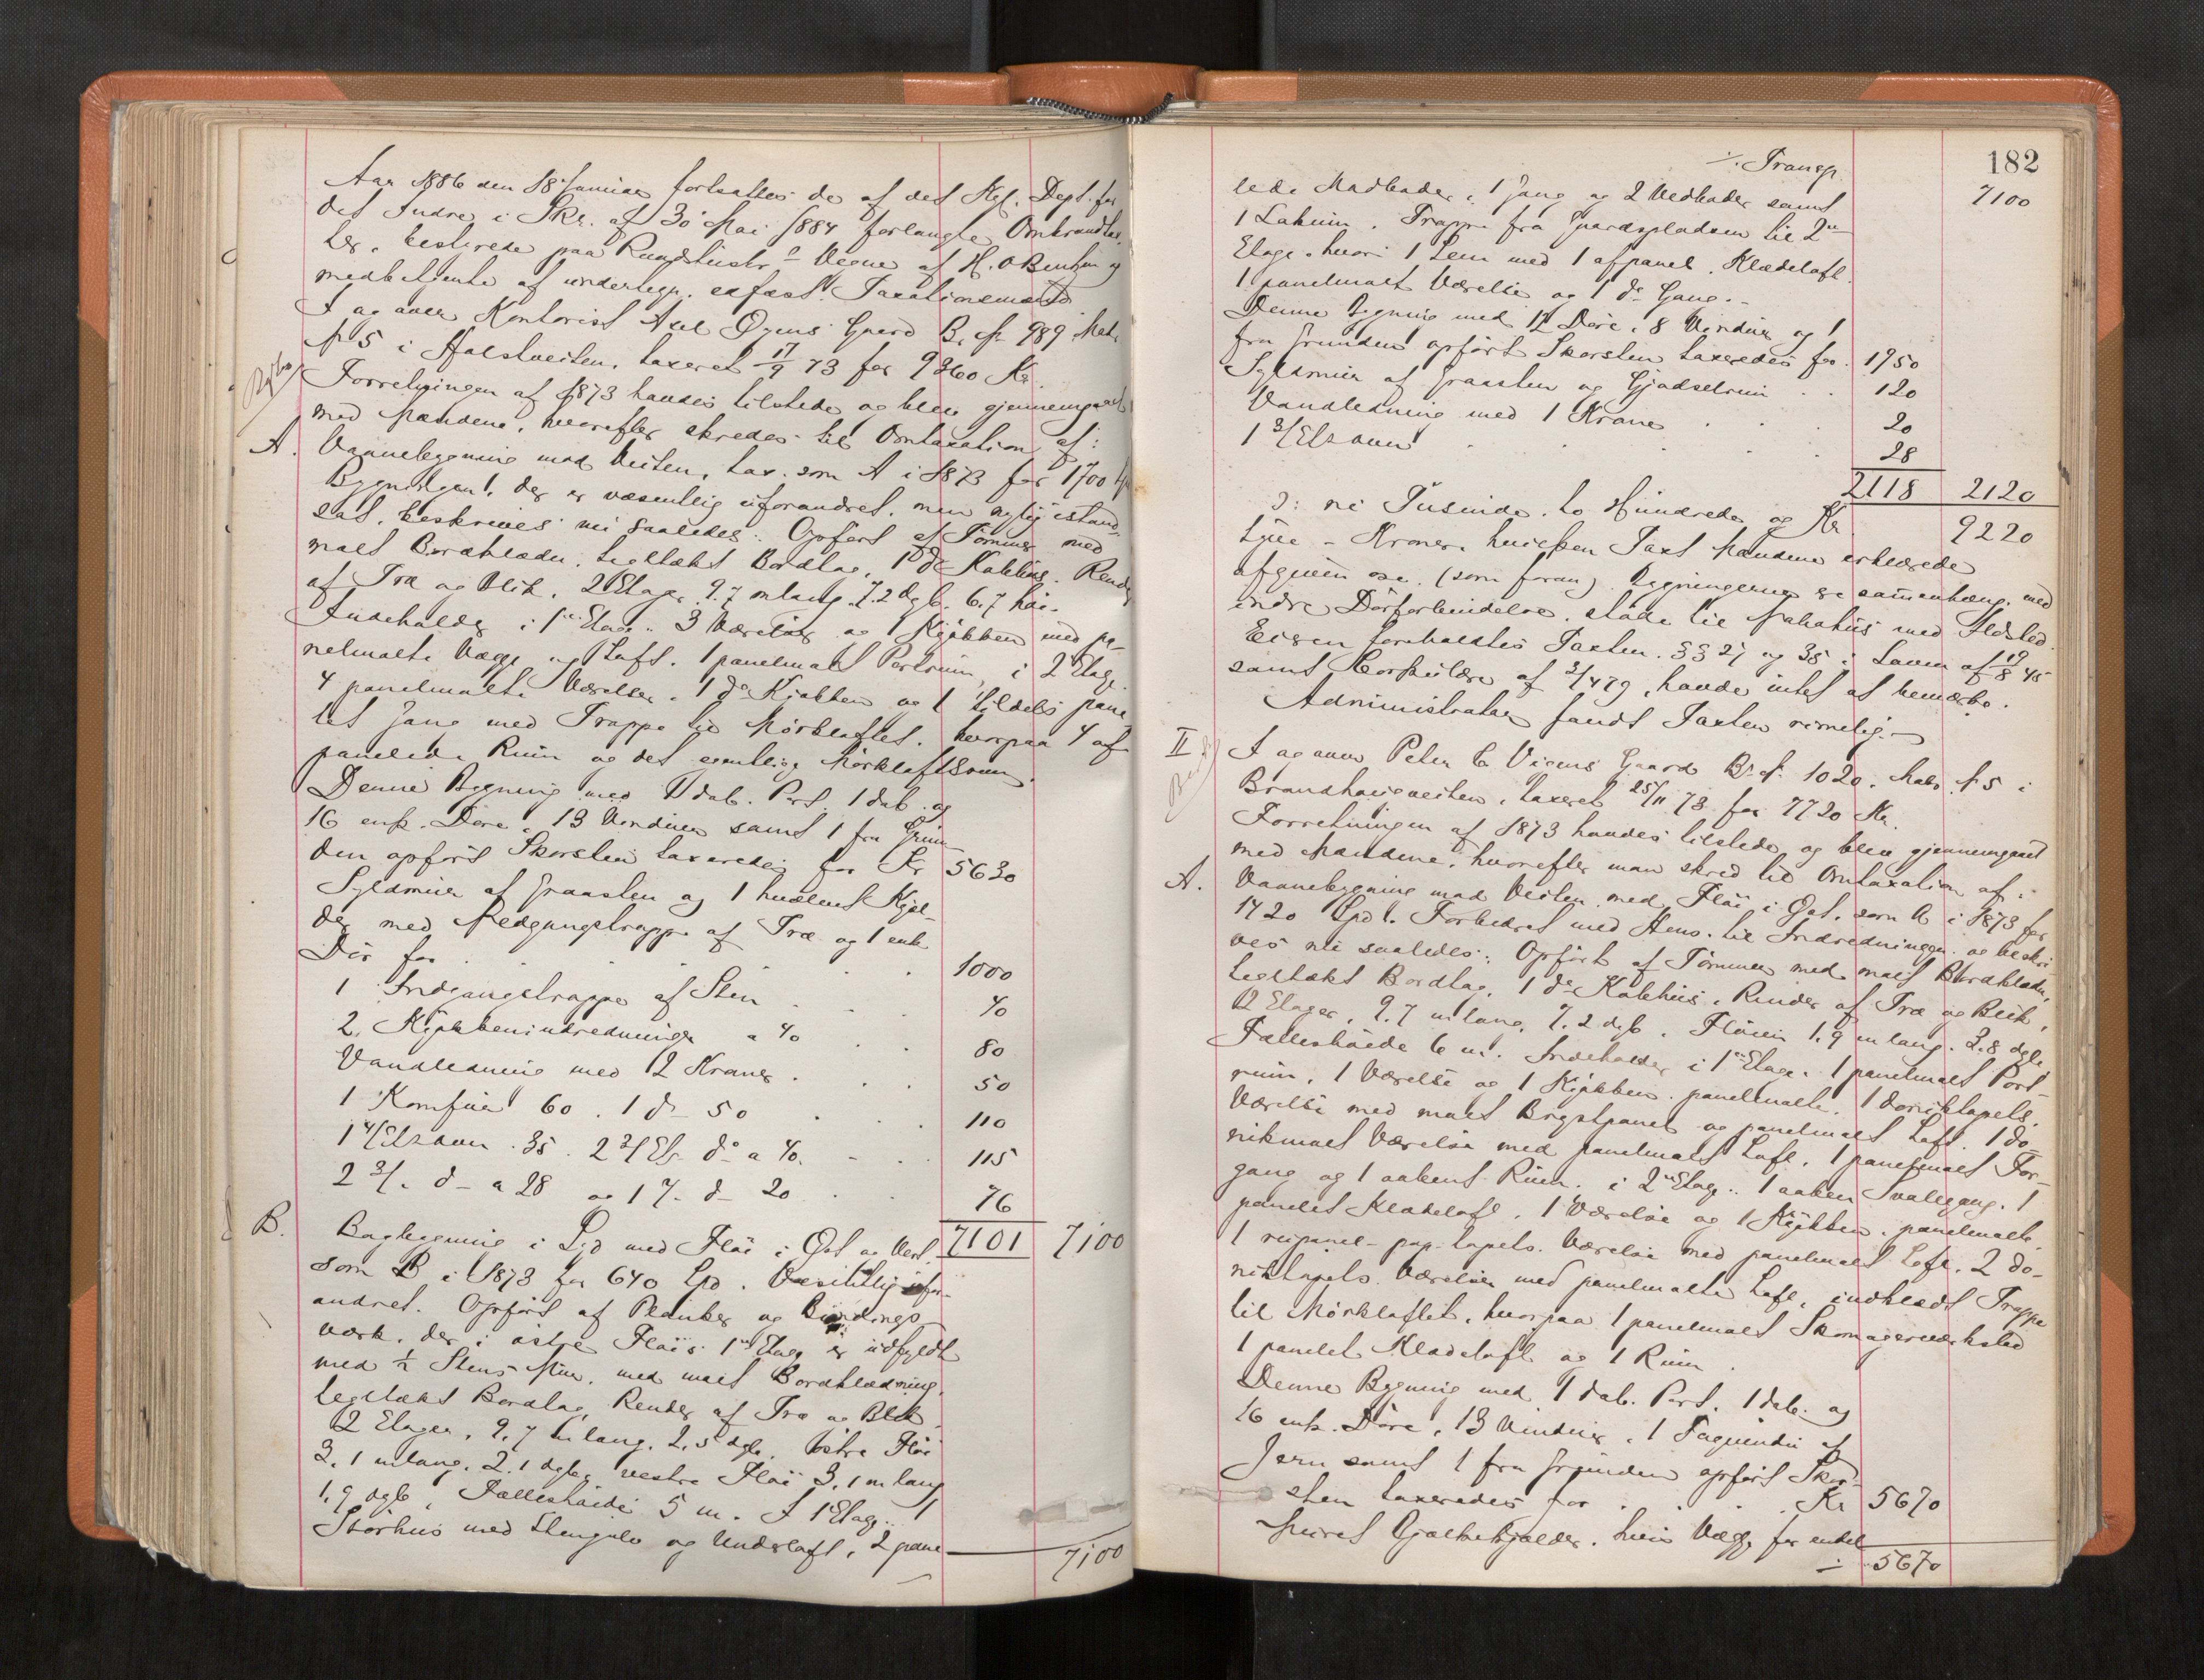 Aar 1886 den 18 Januar fortsattes de af det Kgl. Dept. for
det Indre i Skr. af 30 Mai 1884 forlangte Ombrandtax-
ter, bestyrede paa Raadstuskr.s Vegne af H. O Bentzen og
medbetjente af undertegn. edfæst. Taxationsmænd
I ag over Kontorist Axel Øyens Gaard B. № 989 Matr.
№ 5 i Holstveiten, taxeret 17/9 73 for 9360 Kr.
Forretningen af 1873 havdes tilstede og blev gjennemgaaet
med Mændene, hvorefter skredes til Omtaxation af:
A. Vaanebygning mod Veiten, tax. som A i 1873 for 1700 Spd
Bygningen, der er væsentlig uforandret, men nylig istand-
sat, beskrives nu saaledes: Opført af Tømmer med
malt Bordklædn., teglt​ækt Bordtag, 1 do Kobbhus. Render
af Træ og Blik. 2 Etager 9.7 m lang, 7.2 dyb, 6.7 høi.
Indeholder i 1ste Etage: 3 Værelser og 1 Kjøkken med pa-
nelmalte Vægge og Loft. 1 panelmalt Portrum, i 2 Etage
4 panelmalte Værelser, 1 do Kjøkken og 1 tildels pane-
let Gang med Trappe til Mørkloftet, hvorpaa 4 af-
panelede Rum og det egentlige Mørkloftsrum.
Denne Bygning med 1 dob. Port, 1 dob. og
16 enk. Døre, 13 Vinduer samt 1 fra Grun-
den opført Skorsten taxeredes for Kr 5630
Syldmur af Graasten og 1 hvælvet Kjæl-
der med Nedgangstrappe af Træ og 1 enk
Dør for . . . . 1000
1 Indgangstrappe af Sten . . . 40
2 Kjøkkenindredninger a 40 . . 80
Vandledning med 2 Kraner . . . 50
1 Komfur 60. 1 do 50 . . . 110
1 4/Etsovn 35. 2 3/Ets. do a 40. . . 115
2 3/. d- a 28 og 1 7. d- 20 . . 76
7101 7100
B. Bagbygning i Syd med Fløi i Øst og Vest,
som B i 1873 for 640 Spd. Væsentlig ufor-
andret. Opført af Planker og Bindings-
værk, der i østre Fløis 1ste Etage er udfyldt
med 1/2 Stens Mur, med malt Bordklædning,
teglt​ækt Bordtag, Render af Træ og Blik.
2 Etager, 9.7 m lang, 2.5 dyb, østre Fløi
3.1 m lang, 2.1 dyb, vestre Fløi 3.1 m lang
1.9 dyb, Fælleshøide 5 m. I 1 Etage: 1
Storhus med Stengulv og Underloft, 2 pane-
7100
182
/. Transp. 7100
lede Madboder, 1 Gang og 2 Vedboder samt
1 Lokum. Trappe fra Gaardspladsen til 2den
Etage, hvori 1 Lem med 1 afpanel. Klædeloft
1 panelmalt Værelse og 1 do Gang.-
Denne Bygning med 12 Døre, 8 Vinduer og 1
fra Grunden opført Skorsten taxeredes for. 1950
Syldmur af Graasten og Gjødselrum . . 120
Vandledning med 1 Krane . . . 20
1 3/Etsovn . . . . . 28
2118 2120
ɔ: ni Tusinde, to Hundrede og Kr 9220
tyve - Kroner, hvilken Taxt Mændene erklærede
afgiven osv. (som foran). Bygningerne er sammenhæng. med
indre Dørforbindelse, støde til Nabohus med Ildsted.
Eieren foreholdtes Taxten. §§ 27 og 35 i Loven af 19/8 45
samt Cirkulære af 3/4 79, havde intet at bemærke.
Administrator fandt Taxten rimelig.-
II I ag over Peter C Viguus Gaard B. № 1020, Matr № 5 i
Brandhaugveiten, taxeret 25/11 73 for 7720 Kr.
Forretningen af 1873 havdes tilstede og blev gjennemgaaet
med Mændene, hvorefter man skred til Omtaxation af:
A. Vaanebygning mod Veiten med Fløi i Øst, som A i 1873 for
1420 Spd. Forbedret med Hens. til Indredningen og beskri-
ves nu saaledes: Opført af Tømmer med malt Bordklædn.,
teglt​ækt Bordtag, 1 do Kobbhus, Render af Træ og Blik,
2 Etager, 9.7 m lang, 7.2 dyb. Fløien 1.9 m lang, 2.8 dyb,
Fælleshøide 6 m. Indeholder i 1ste Etage: 1 panelmalt Port-
rum, 1 Værelse og 1 Kjøkken, panelmalte. 1 doriktapets.
Værelse med malt Brystpanel og panelmalt Loft. 1 do-
rikmalt Værelse med panelmalt Loft, 1 panelmalt For-
gang og 1 aabent Rum. i 2den Etage: 1 aaben Svalegang. 1
panelet Klædeloft, 1 Værelse og 1 Kjøkken, panelmalte.
1 rupanel- pap- tapets. Værelse med panelmalt Loft, 2 do-
riktapets. Værelser med panelmalte Loft, indklædt Trappe
til Mørkloftet, hvorpaa 1 panelmalt Skomagerværksted
1 panelet Klædeloft og 1 Rum.
Denne Bygning med 1 dob. Port, 1 dob. og
16 enk. Døre, 13 Vinduer, 1 Tagvindu af
Jern samt 1 fra Grunden opført Skor-
sten taxeredes for . . . Kr 5670
Muret Gjælkekjælder, hvis Vægge for endel
/. 5670